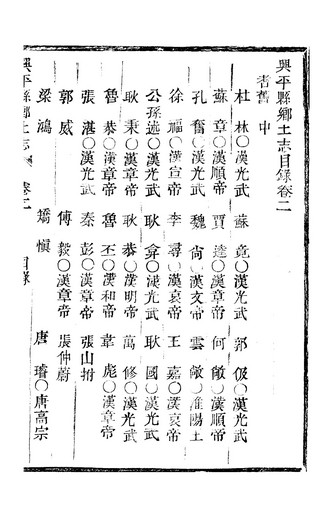 興平縣鄉土志目錄卷二
耆舊中
杜林○漢光武 蘇竟○漢光武 郭伋○漢光武
蘇章○漢順帝 賈逵○漢章帝 何敞○漢順帝
孔奮○漢光武 魏尚○漢文帝 雲敞○淮陽王
徐福○漢宣帝 李尋○漢哀帝 王嘉○漢哀帝
公孫述○漢光武 耿弇○漢光武 耿國○漢光武
耿秉○漢章帝 耿恭○漢明帝 萬修○漢光武
魯恭○漢章帝 魯丕○漢和帝 韋彪○漢章帝
張湛○漢光武 秦彭○漢章帝 張山拊
郭威 傅毅○漢章帝 張仲蔚
梁鴻 矯愼 唐璿○唐高宗
興平縣鄉土志 卷二 目錄